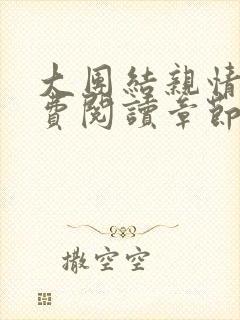 大團結親情
費閱讀章節
撒空空